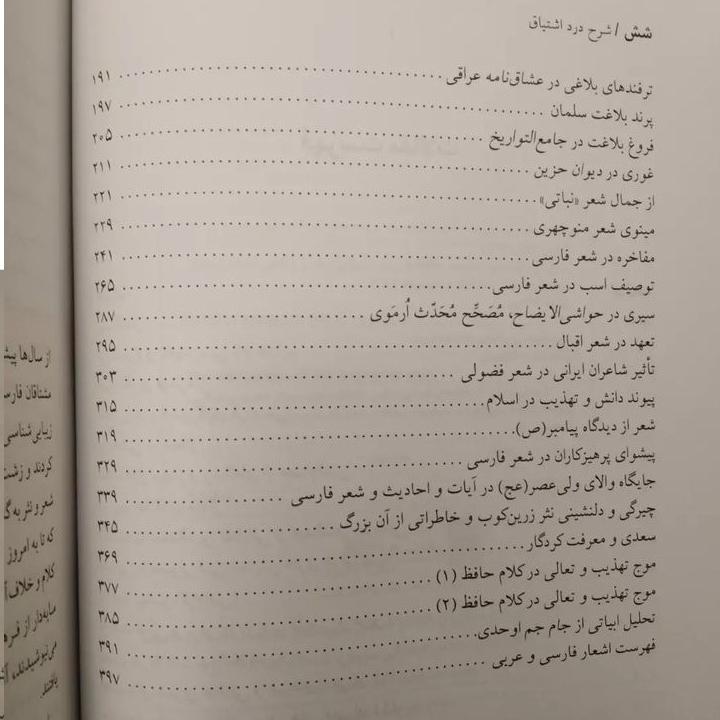 شش / شرح درد اشتیاق
ترفندهای بلاغی در عشاق‌نامه عراقی ........ ۱۹۱
پرند بلاغت سلمان ........ ۱۹۷
فروغ بلاغت در جامع‌التواریخ ........ ۲۰۵
غوری در دیوان حزین ........ ۲۱۱
از جمال شعر «نباتی» ........ ۲۲۱
مینوی شعر منوچهری ........ ۲۲۹
مفاخره در شعر فارسی ........ ۲۴۱
توصیف اسب در شعر فارسی ........ ۲۶۵
سیری در حواشی‌الایضاح، مُصَحِّح مُحَدّث اُرمَوی ........ ۲۸۷
تعهد در شعر اقبال ........ ۲۹۵
تأثیر شاعران ایرانی در شعر فضولی ........ ۳۰۳
پیوند دانش و تهذیب در اسلام ........ ۳۱۵
شعر از دیدگاه پیامبر(ص) ........ ۳۱۹
پیشوای پرهیزکاران در شعر فارسی ........ ۳۲۹
جایگاه والای ولی‌عصر(عج) در آیات و احادیث و شعر فارسی ........ ۳۳۹
چیرگی و دلنشینی نثر زرین‌کوب و خاطراتی از آن بزرگ ........ ۳۴۵
سعدی و معرفت کردگار ........ ۳۶۹
موج تهذیب و تعالی در کلام حافظ (۱) ........ ۳۷۷
موج تهذیب و تعالی در کلام حافظ (۲) ........ ۳۸۵
تحلیل ابیاتی از جام جم اوحدی ........ ۳۹۱
فهرست اشعار فارسی و عربی ........ ۳۹۷
از سال‌ها
مشتاقان
زیبایی‌شناسی
کردند و
شعر و نثر به
که تا به امروز
کلام و خلاف
سایه‌دار از
می‌نیوشیدند،
یافتند.